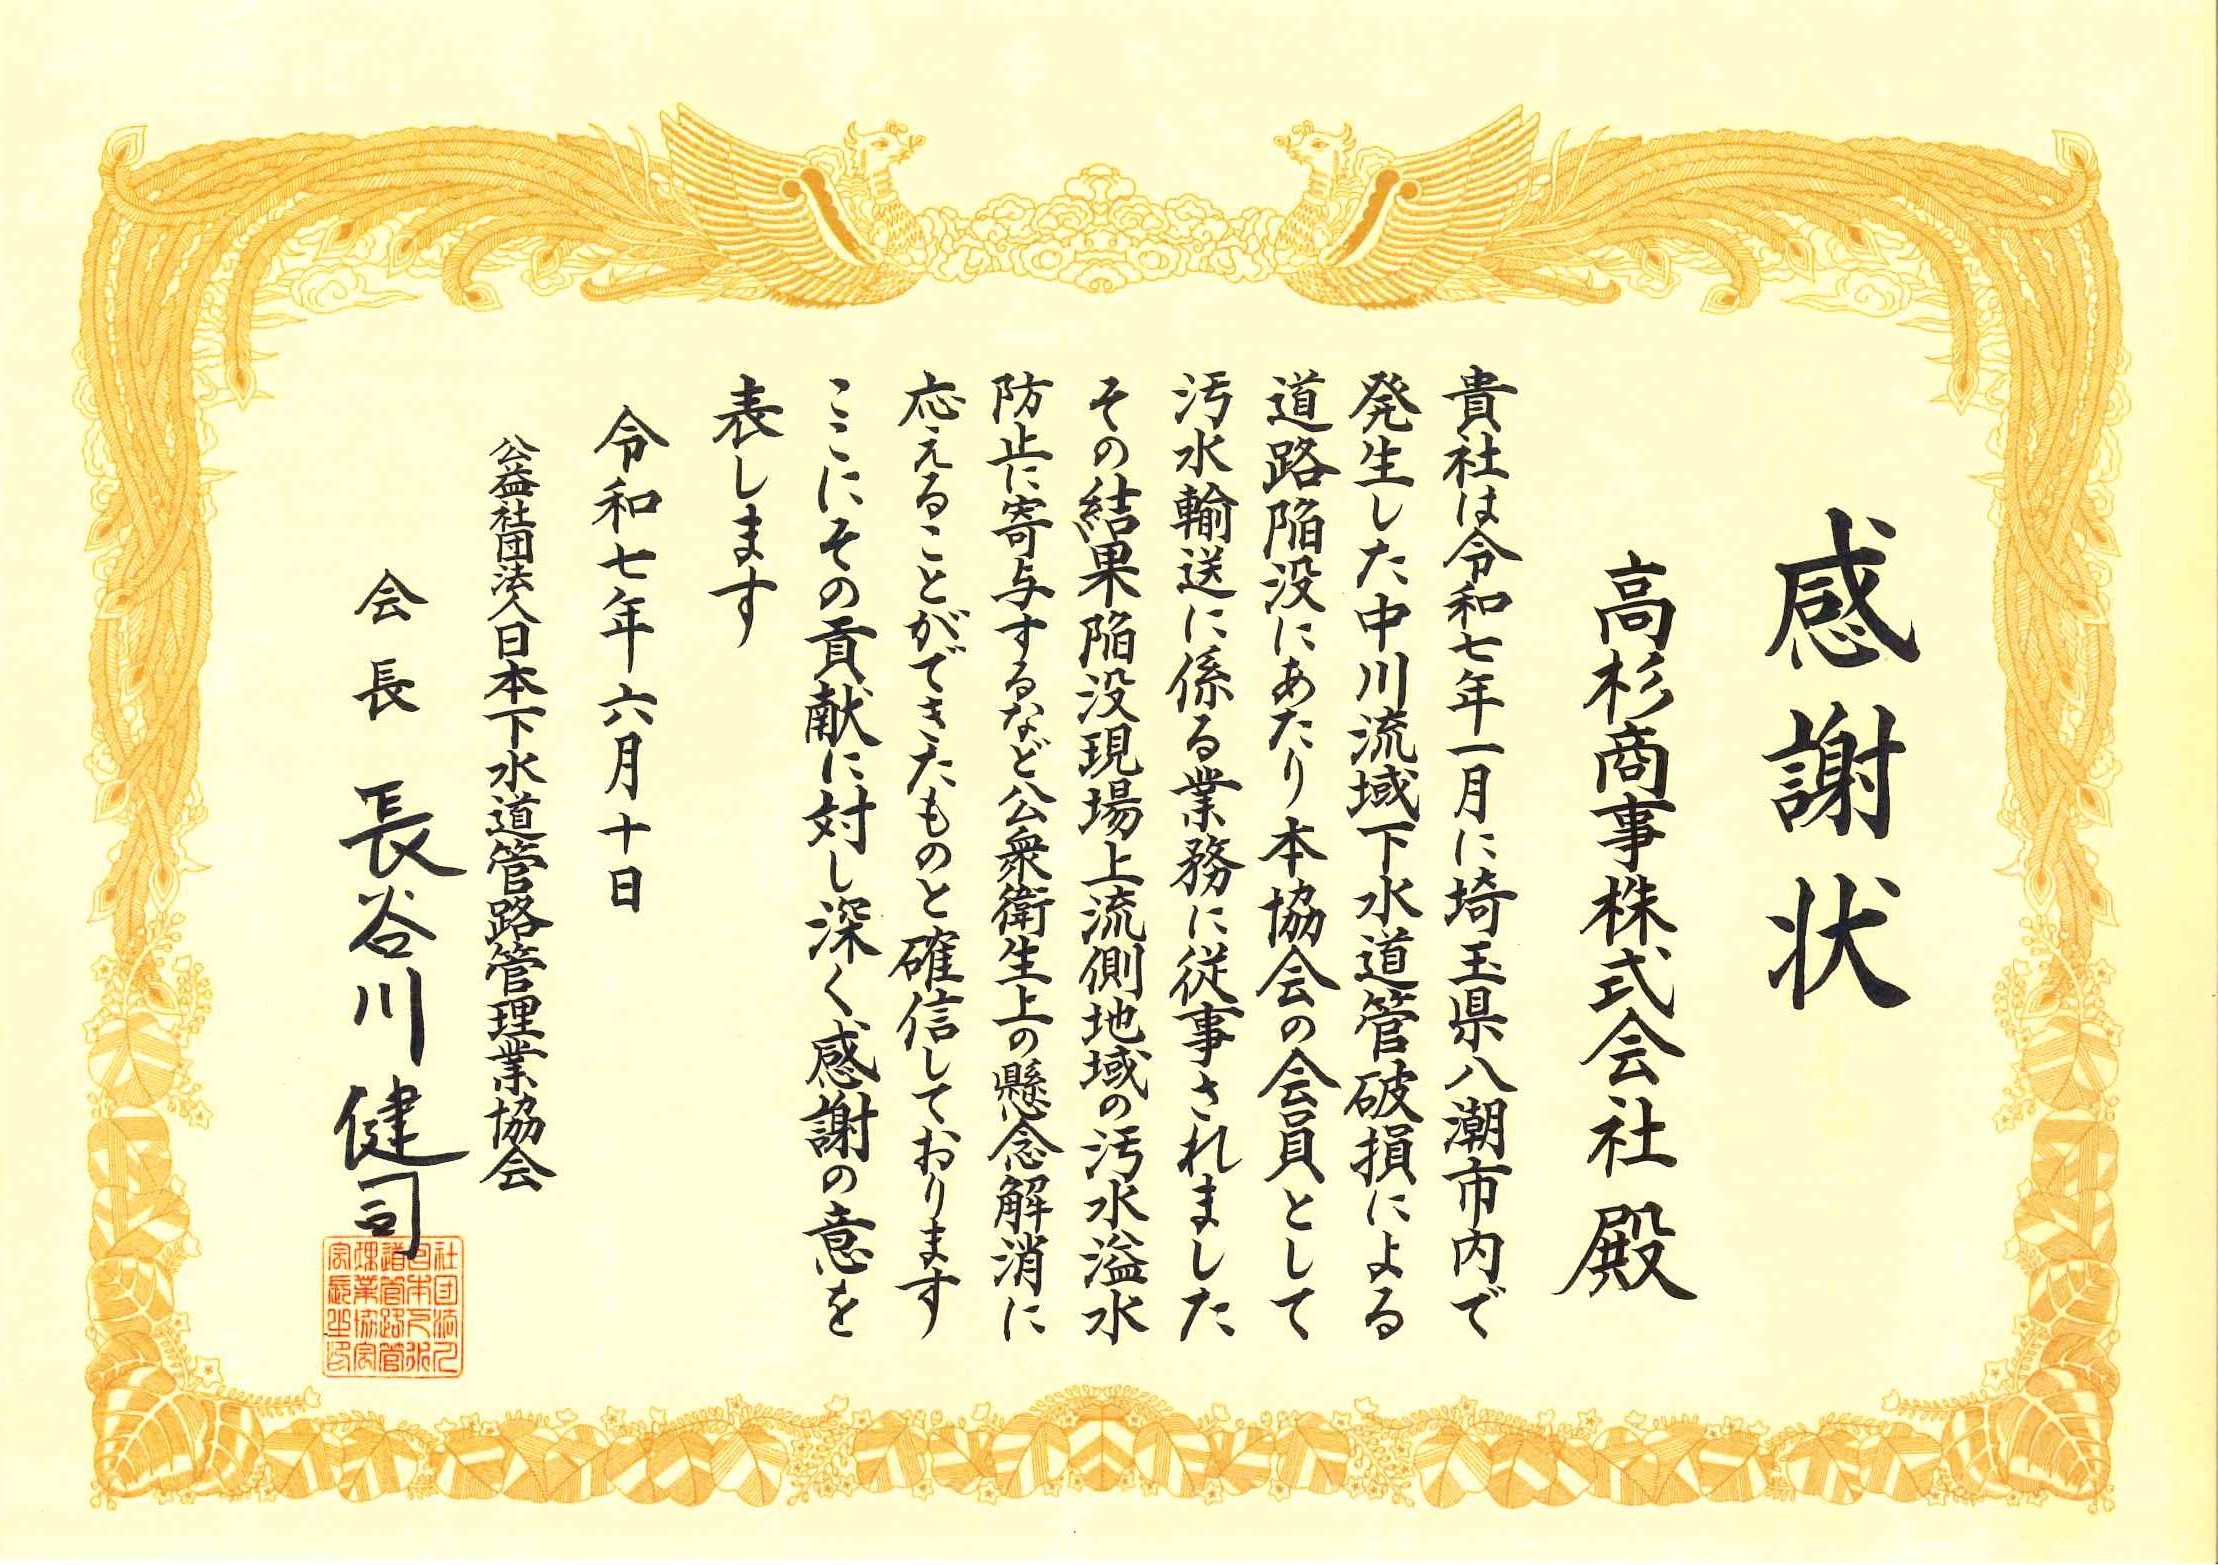 感謝状
高杉商事株式会社 殿
貴社は令和七年一月に埼玉県八潮市内で
発生した中川流域下水道管破損による
道路陥没にあたり本協会の会員として
汚水輸送に係る業務に従事されました
その結果陥没現場上流側地域の汚水溢水
防止に寄与するなど公衆衛生上の懸念解消に
応えることができたものと確信しております
ここにその貢献に対し深く感謝の意を
表します
令和七年六月十日
公益社団法人日本下水道管路管理業協会
会長 長谷川 健司